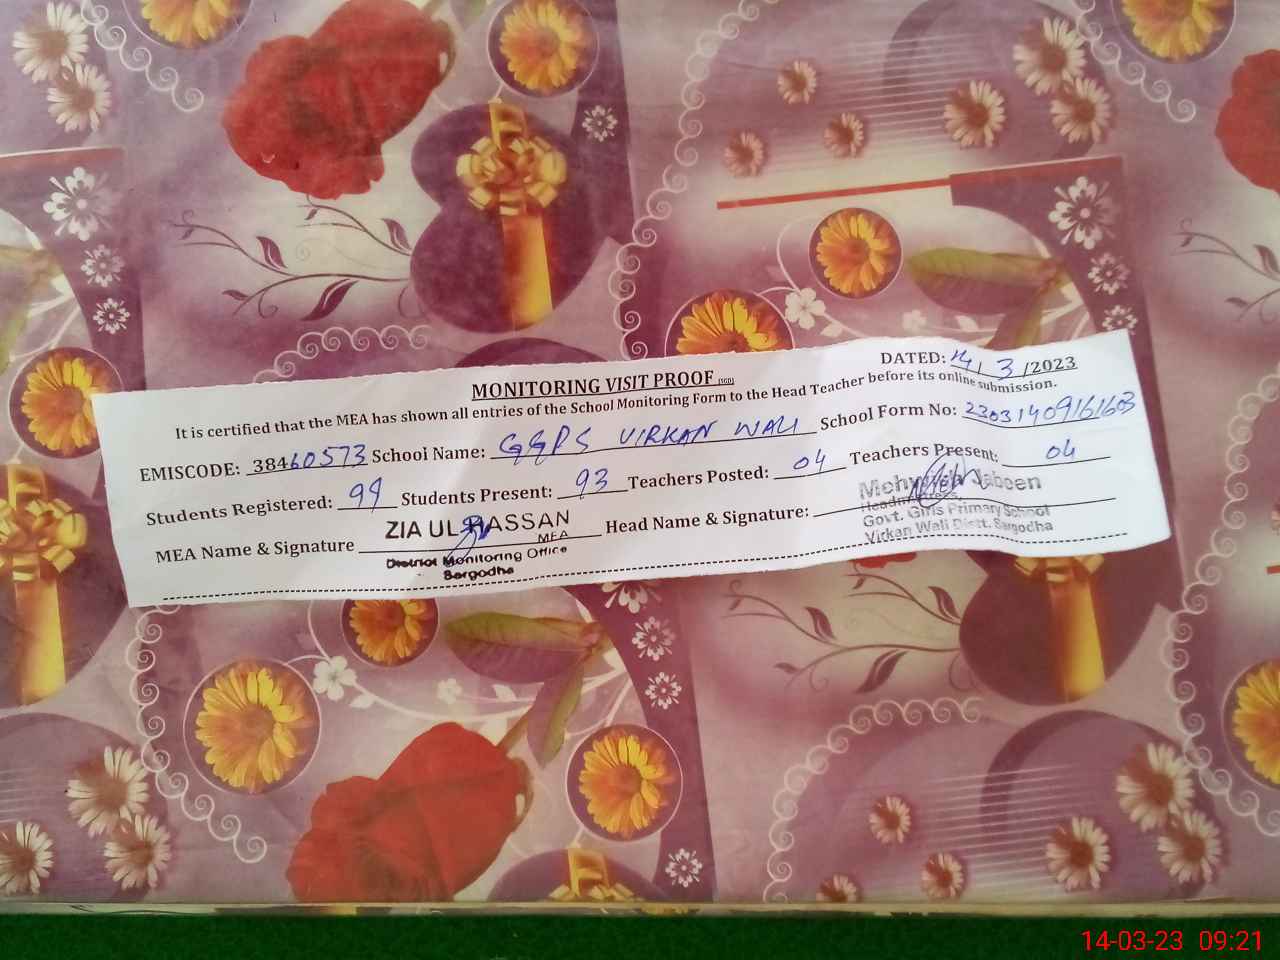 DATED: 14 / 3 /2023
MONITORING VISIT PROOF (SGD)
It is certified that the MEA has shown all entries of the School Monitoring Form to the Head Teacher before its online submission.
EMISCODE: 38460573 School Name: GGPS VIRKAN WALI School Form No: 23031409161603
Students Registered: 99 Students Present: 93 Teachers Posted: 04 Teachers Present: 04
MEA Name & Signature ZIA UL HASSAN Head Name & Signature: Jabeen
MEA
District Monitoring Office
Sargodha
Headmistress
Govt. Girls Primary School
Virkan Wali Distt. Sargodha
14-03-23 09:21